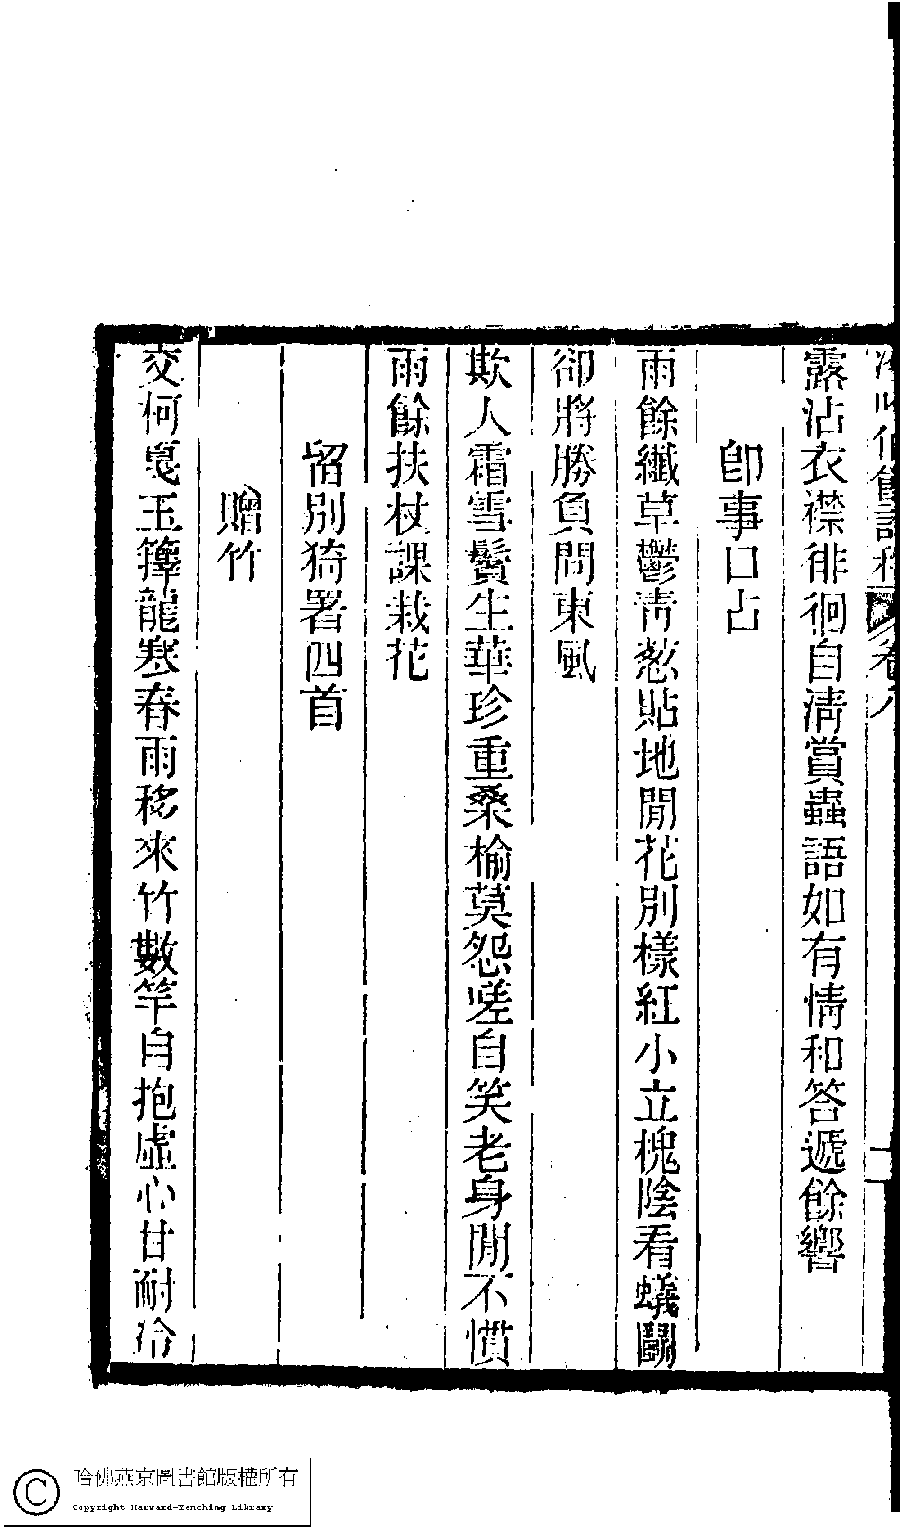 卷八
露沾衣襟徘徊自淸賞蟲語如有情和答遞餘響
卽事口占
雨餘纖草鬱靑葱貼地閒花別樣紅小立槐陰看蟻鬭
卻將勝負問東風
欺人霜雪鬢生華珍重桑榆莫怨嗟自笑老身閒不慣
雨餘扶杖課栽花
留別猗署四首
贈竹
交柯戛玉籜龍寒春雨移來竹數竿自抱虛心甘耐冷
哈佛燕京圖書館版權所有
Copyright Harvard-Yenching Library